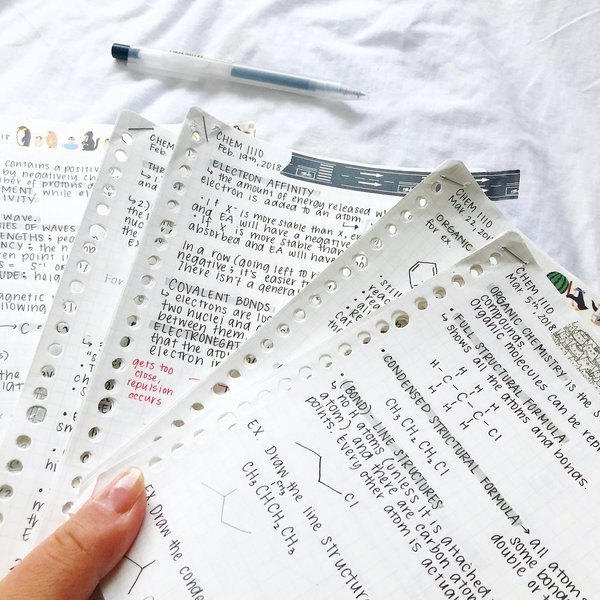 18
contains a positive
by negatively ch
ber of protons d
MENT, while el
IVITY
wave.
IES OF WAVES
ENGTHS; pe
NCY; the n
en point i
S = S⁻¹ or
UDE; heig
magnetic
following
→ C =
THR
and
2)
the
nuc
to
EX
For
CHEM 1110
Feb. 19th, 2018
ELECTRON AFFINITY
↳ the amount of energy released w
electron is added to an atom
· if X⁻ is more stable than X, en
and EA will have a negative
· if X is more stable than
absorbed and EA will have
In a row (going left to ri
negative; it's easier t
There isn't a genera
COVALENT BONDS
↳ electrons are loc
two nuclei and
between them.
ELECTRONEGAT
that the ato
electron in
gets too
close,
repulsion
occurs
CHEM 1110
Mar 22, 201
ORGANIC
For ex
CHEM 1110
Mar 5th, 2018
ORGANIC CHEMISTRY is the s
compounds.
Organic molecules can be repr
· FULL STRUCTURAL FORMULA
↳ shows all the atoms and bonds.
H H H
H-C-C-C-Cl
H H H
· CONDENSED STRUCTURAL FORMULA
↳ all atoms
some bond
double or t
CH₃CH₂CH₂Cl
· (BOND-)LINE STRUCTURES
↳ no atoms (unless it is attached
atom) and there are carbon atom
points. Every other atom is actua
Cl
EX. Draw the line structur
CH₃
CH₃CHCH₂CH₃
EX. Draw the conde